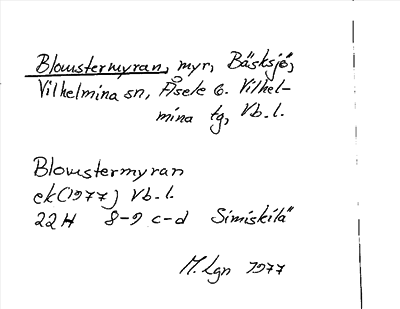 Blomstermyran, myr, Bäsksjö,
Vilhelmina sn, Åsele o. Vilhel-
mina tg, Vb. l.
Blomstermyran
ek (1977) Vb. l.
22H 8-9 c-d Simiskilä
M. Lgn 1977